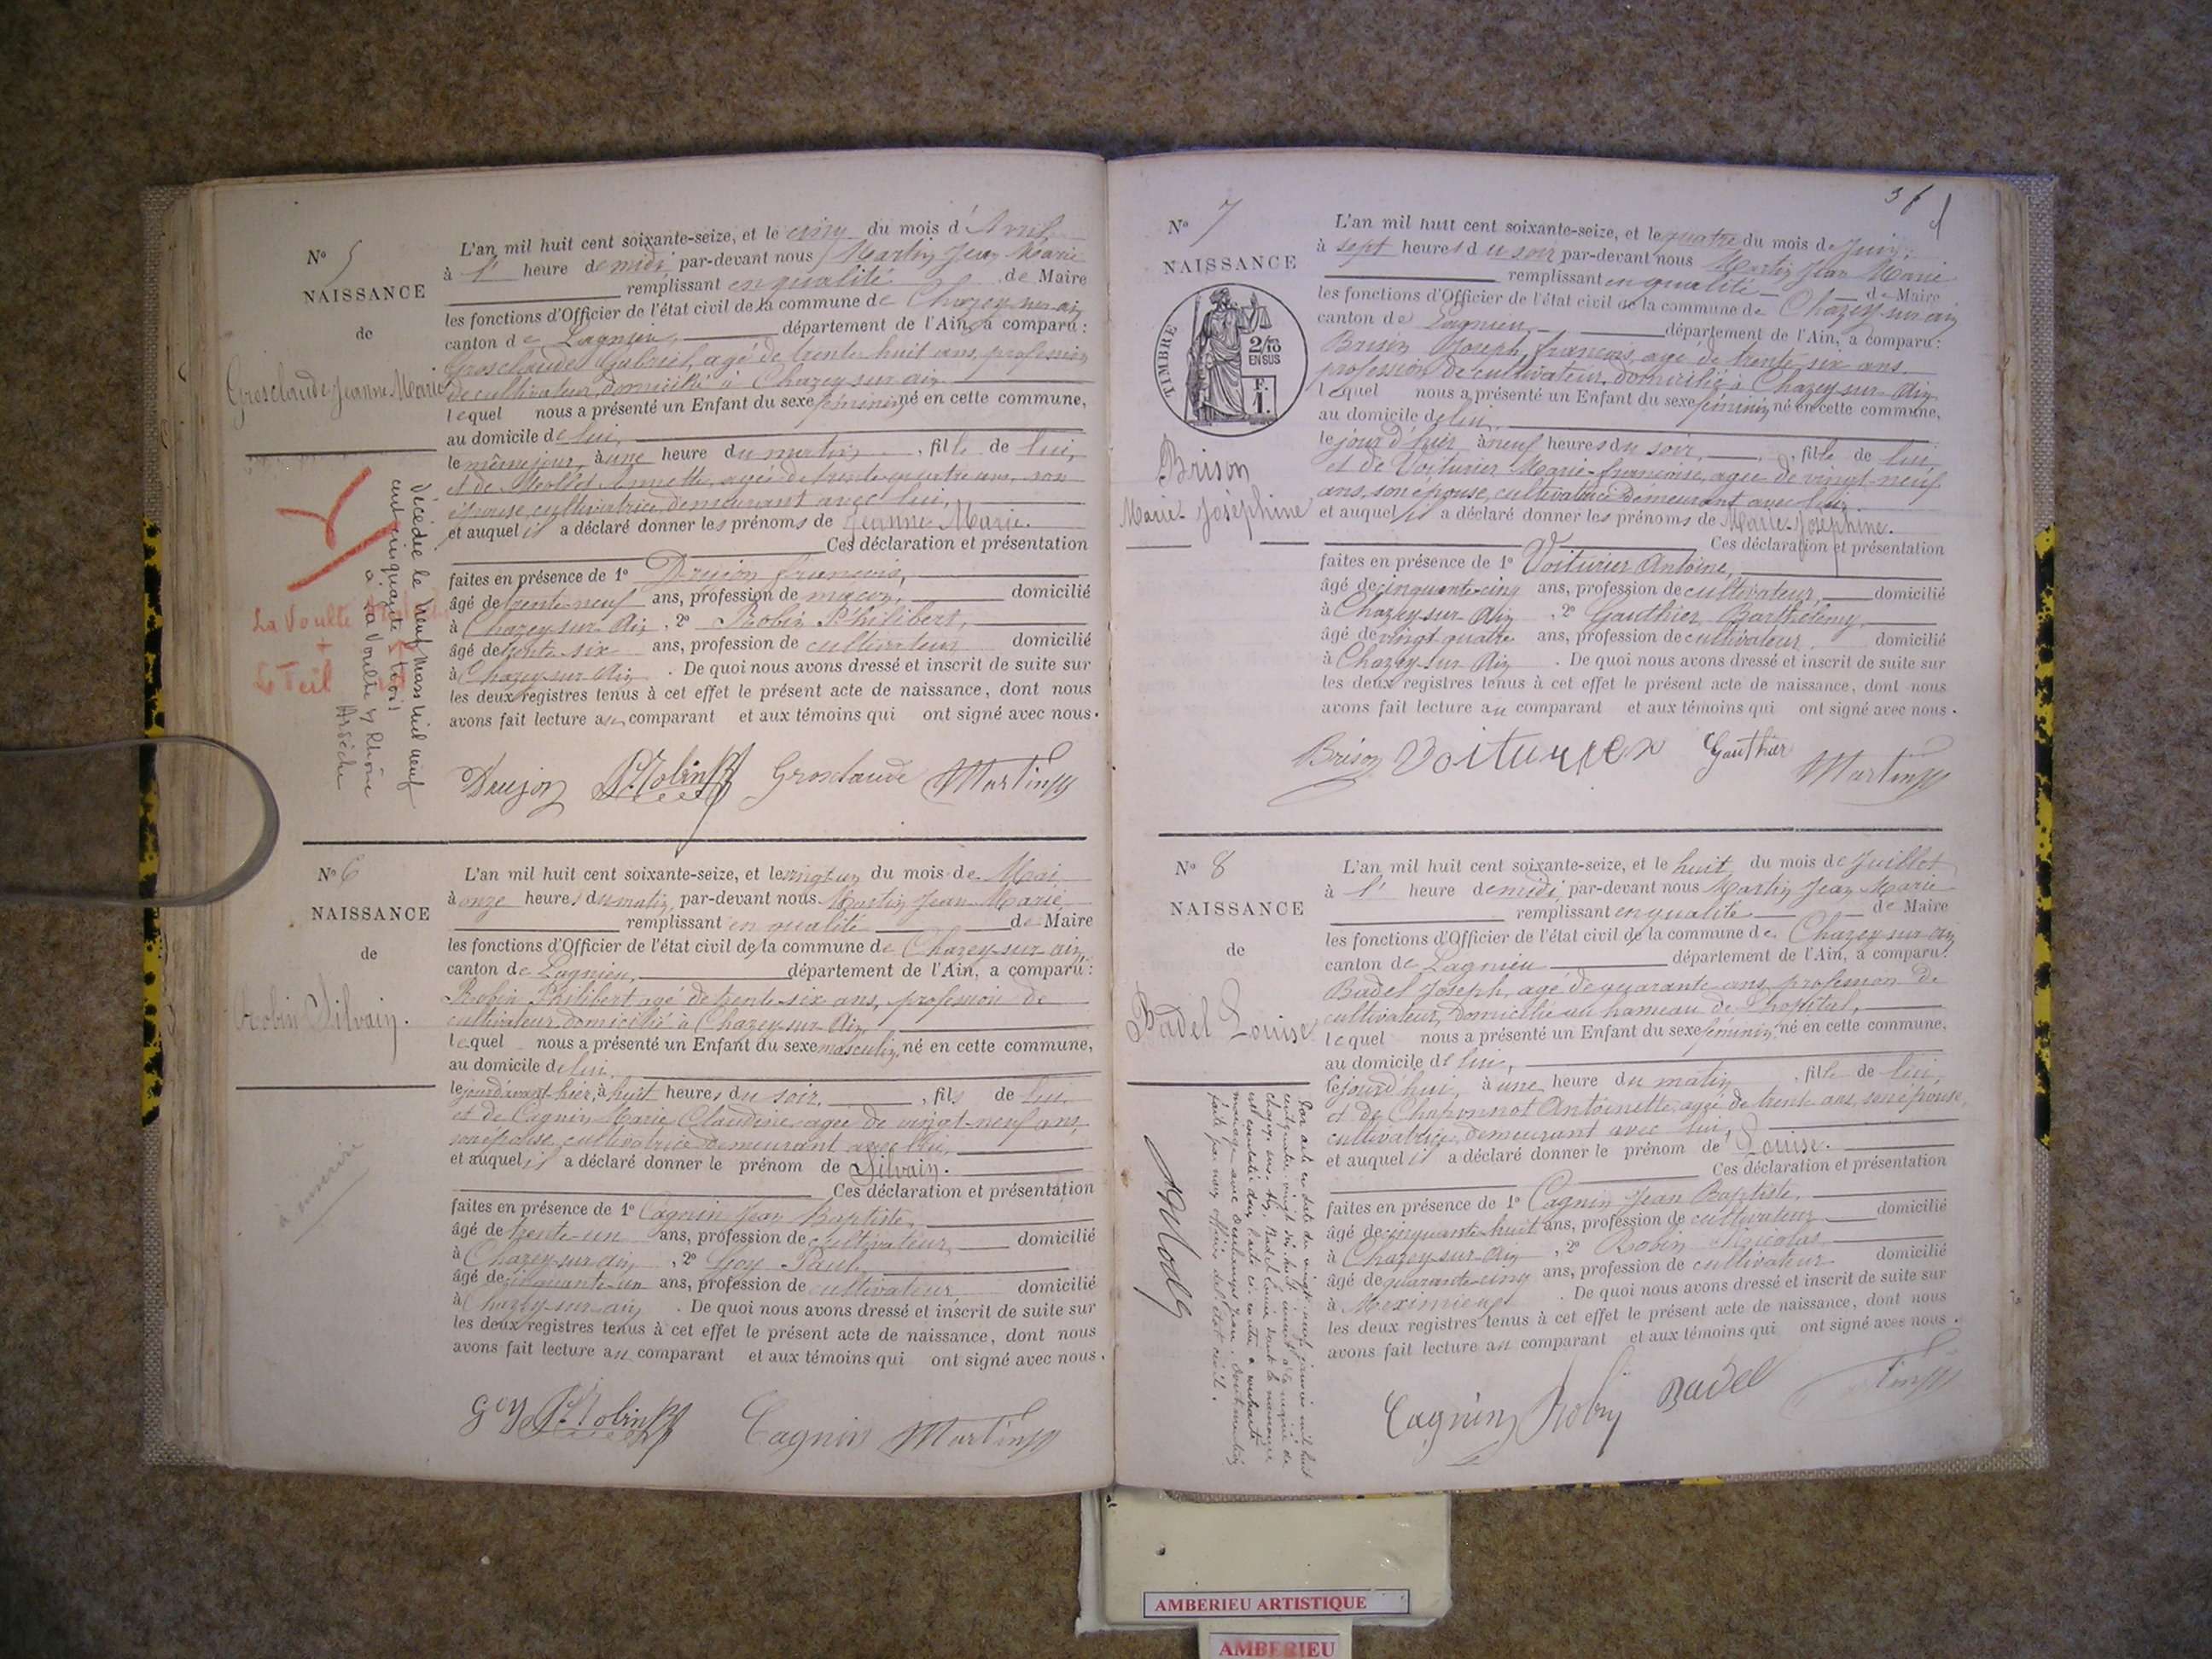 N° 5
NAISSANCE
de
Grosclaude Jeanne Marie
L'an mil huit cent soixante-seize, et le cinq du mois d'Avril
à l' heure de midi par-devant nous Martin Jean Marie
remplissant en qualité de Maire
les fonctions d'Officier de l'état civil de la commune de Chazey-sur-ain
canton de Lagnieu, département de l'Ain, a comparu :
Grosclaude Gabriel, agé de trente huit ans, profession
de cultivateur, domicilié à Chazey-sur-ain
lequel nous a présenté un Enfant du sexe féminin né en cette commune,
au domicile de lui,
le même jour, à une heure du matin, fille de lui,
et de Annette, agée de trente quatre ans, son
épouse, cultivatrice, demeurant avec lui,
et auquel il a déclaré donner les prénoms de Jeanne Marie.
Ces déclaration et présentation
faites en présence de 1° Drujon françois,
âgé de trente-neuf ans, profession de maçon, domicilié
à Chazey-sur-Ain, 2° Robin Philibert,
âgé de trente-six ans, profession de cultivateur domicilié
à Chazey-sur-Ain. De quoi nous avons dressé et inscrit de suite sur
les deux registres tenus à cet effet le présent acte de naissance, dont nous
avons fait lecture au comparant et aux témoins qui ont signé avec nous.
Drujon P. Robin Grosclaude Martin
Décédée le neuf mars mil neuf
cent cinquante trois
à La Voulte s/ Rhône
Ardèche
La Voulte
+
Le Teil
N° 6
NAISSANCE
de
Robin Silvain.
à inscrire
L'an mil huit cent soixante-seize, et le vingt un du mois de Mai
à onze heures du matin, par-devant nous Martin Jean Marie
remplissant en qualité de Maire
les fonctions d'Officier de l'état civil de la commune de Chazey-sur-ain,
canton de Lagnieu, département de l'Ain, a comparu :
Robin Philibert agé de trente-six ans, profession de
cultivateur, domicilié à Chazey-sur-Ain
lequel nous a présenté un Enfant du sexe masculin, né en cette commune,
au domicile de lui,
le jour d'avant hier, à huit heures du soir, fils de lui,
et de Cagnin Marie Claudine agée de vingt-neuf ans,
son épouse, cultivatrice demeurant avec lui,
et auquel il a déclaré donner le prénom de Silvain.
Ces déclaration et présentation
faites en présence de 1° Cagnin Jean Baptiste,
âgé de trente-un ans, profession de cultivateur domicilié
à Chazey-sur-ain, 2° Goy Paul,
âgé de cinquante-un ans, profession de cultivateur domicilié
à Chazey-sur-ain. De quoi nous avons dressé et inscrit de suite sur
les deux registres tenus à cet effet le présent acte de naissance, dont nous
avons fait lecture au comparant et aux témoins qui ont signé avec nous.
Goy P. Robin Cagnin Martin
36
N° 7
NAISSANCE
TIMBRE
2/10
EN SUS
F.
1.
Brison
Marie-Joséphine
L'an mil huit cent soixante-seize, et le quatre du mois de Juin,
à sept heures du soir par-devant nous Martin Jean Marie
remplissant en qualité de Maire
les fonctions d'Officier de l'état civil de la commune de Chazey-sur-ain
canton de Lagnieu, département de l'Ain, a comparu :
Brison Joseph françois, agé de trente-six ans.
profession de cultivateur, domicilié à Chazey-sur-Ain
lequel nous a présenté un Enfant du sexe féminin né en cette commune,
au domicile de lui,
le jour d'hier, à neuf heures du soir, fille de lui,
et de Voiturier Marie-françoise, agée de vingt-neuf
ans, son épouse, cultivatrice demeurant avec lui.
et auquel il a déclaré donner les prénoms de Marie-Joséphine.
Ces déclaration et présentation
faites en présence de 1° Voiturier Antoine,
âgé de cinquante-cinq ans, profession de cultivateur, domicilié
à Chazey-sur-Ain, 2° Gauthier Barthélemy,
âgé de vingt-quatre ans, profession de cultivateur domicilié
à Chazey-sur-Ain. De quoi nous avons dressé et inscrit de suite sur
les deux registres tenus à cet effet le présent acte de naissance, dont nous
avons fait lecture au comparant et aux témoins qui ont signé avec nous.
Brison Voiturier Gauthier Martin
N° 8
NAISSANCE
de
Badel Louise
L'an mil huit cent soixante-seize, et le huit du mois de Juillet
à l' heure de midi, par-devant nous Martin Jean Marie
remplissant en qualité de Maire
les fonctions d'Officier de l'état civil de la commune de Chazey-sur-ain
canton de Lagnieu département de l'Ain, a comparu :
Badel Joseph, agé de quarante ans, profession de
cultivateur, domicilié au hameau de l'hopital,
lequel nous a présenté un Enfant du sexe féminin né en cette commune,
au domicile de lui,
le jourd'hui, à une heure du matin, fille de lui,
et de Chaponnot Antoinette, agée de trente ans, son épouse,
cultivatrice, demeurant avec lui,
et auquel il a déclaré donner le prénom de Louise.
Ces déclaration et présentation
faites en présence de 1° Cagnin Jean Baptiste,
âgé de cinquante-huit ans, profession de cultivateur domicilié
à Chazey-sur-Ain, 2° Robin Nicolas
âgé de quarante-cinq ans, profession de cultivateur domicilié
à Meximieux. De quoi nous avons dressé et inscrit de suite sur
les deux registres tenus à cet effet le présent acte de naissance, dont nous
avons fait lecture au comparant et aux témoins qui ont signé avec nous.
Cagnin Robin Badel
Par acte en date du vingt-neuf janvier mil huit
cent quatre vingt dix huit, à la mairie de
Chazey-sur-Ain, Badel Louise dont la naissance
est constatée dans l'acte ci-contre a contracté
mariage avec Jean. Dont mention
faite par nous officier de l'état civil.
AMBERIEU ARTISTIQUE
AMBERIEU